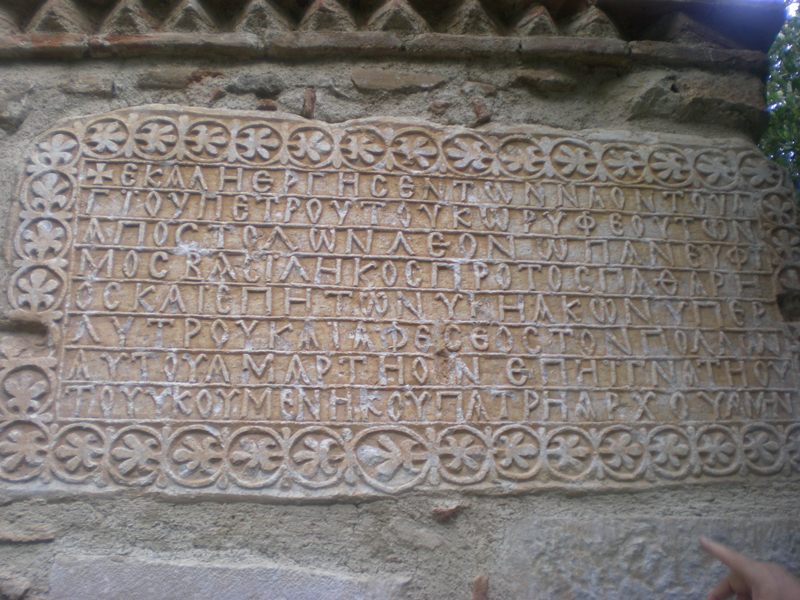 +ΕΚΑΛΗΕΡΓΗΣΕΝΤΩΝΝΑΟΝΤΟΥΑ
ΓΙΟΥΠΕΤΡΟΥΤΟΥΚΩΡΥΦΕΟΥΤΩΝ
ΑΠΟΣΤΟΛΩΝΛΕΟΝΩΠΑΝΕΥΦΗ
ΜΟΣΒΑΣΙΛΗΚΟΣΠΡΟΤΟΣΠΑΘΑΡΗ
ΟΣΚΑΙΕΠΗΤΩΝΥΚΗΑΚΩΝΥΠΕΡ
ΛΥΤΡΟΥΚΑΙΑΦΕΣΕΟΣΤΟΝΠΟΛΛΩΝ
ΑΥΤΟΥΑΜΑΡΤΗΟΝΕΠΗΙΓΝΑΤΗΟΥ
ΤΟΥΥΚΟΥΜΕΝΗΚΟΥΠΑΤΡΗΑΡΧΟΥΑΜΗΝ